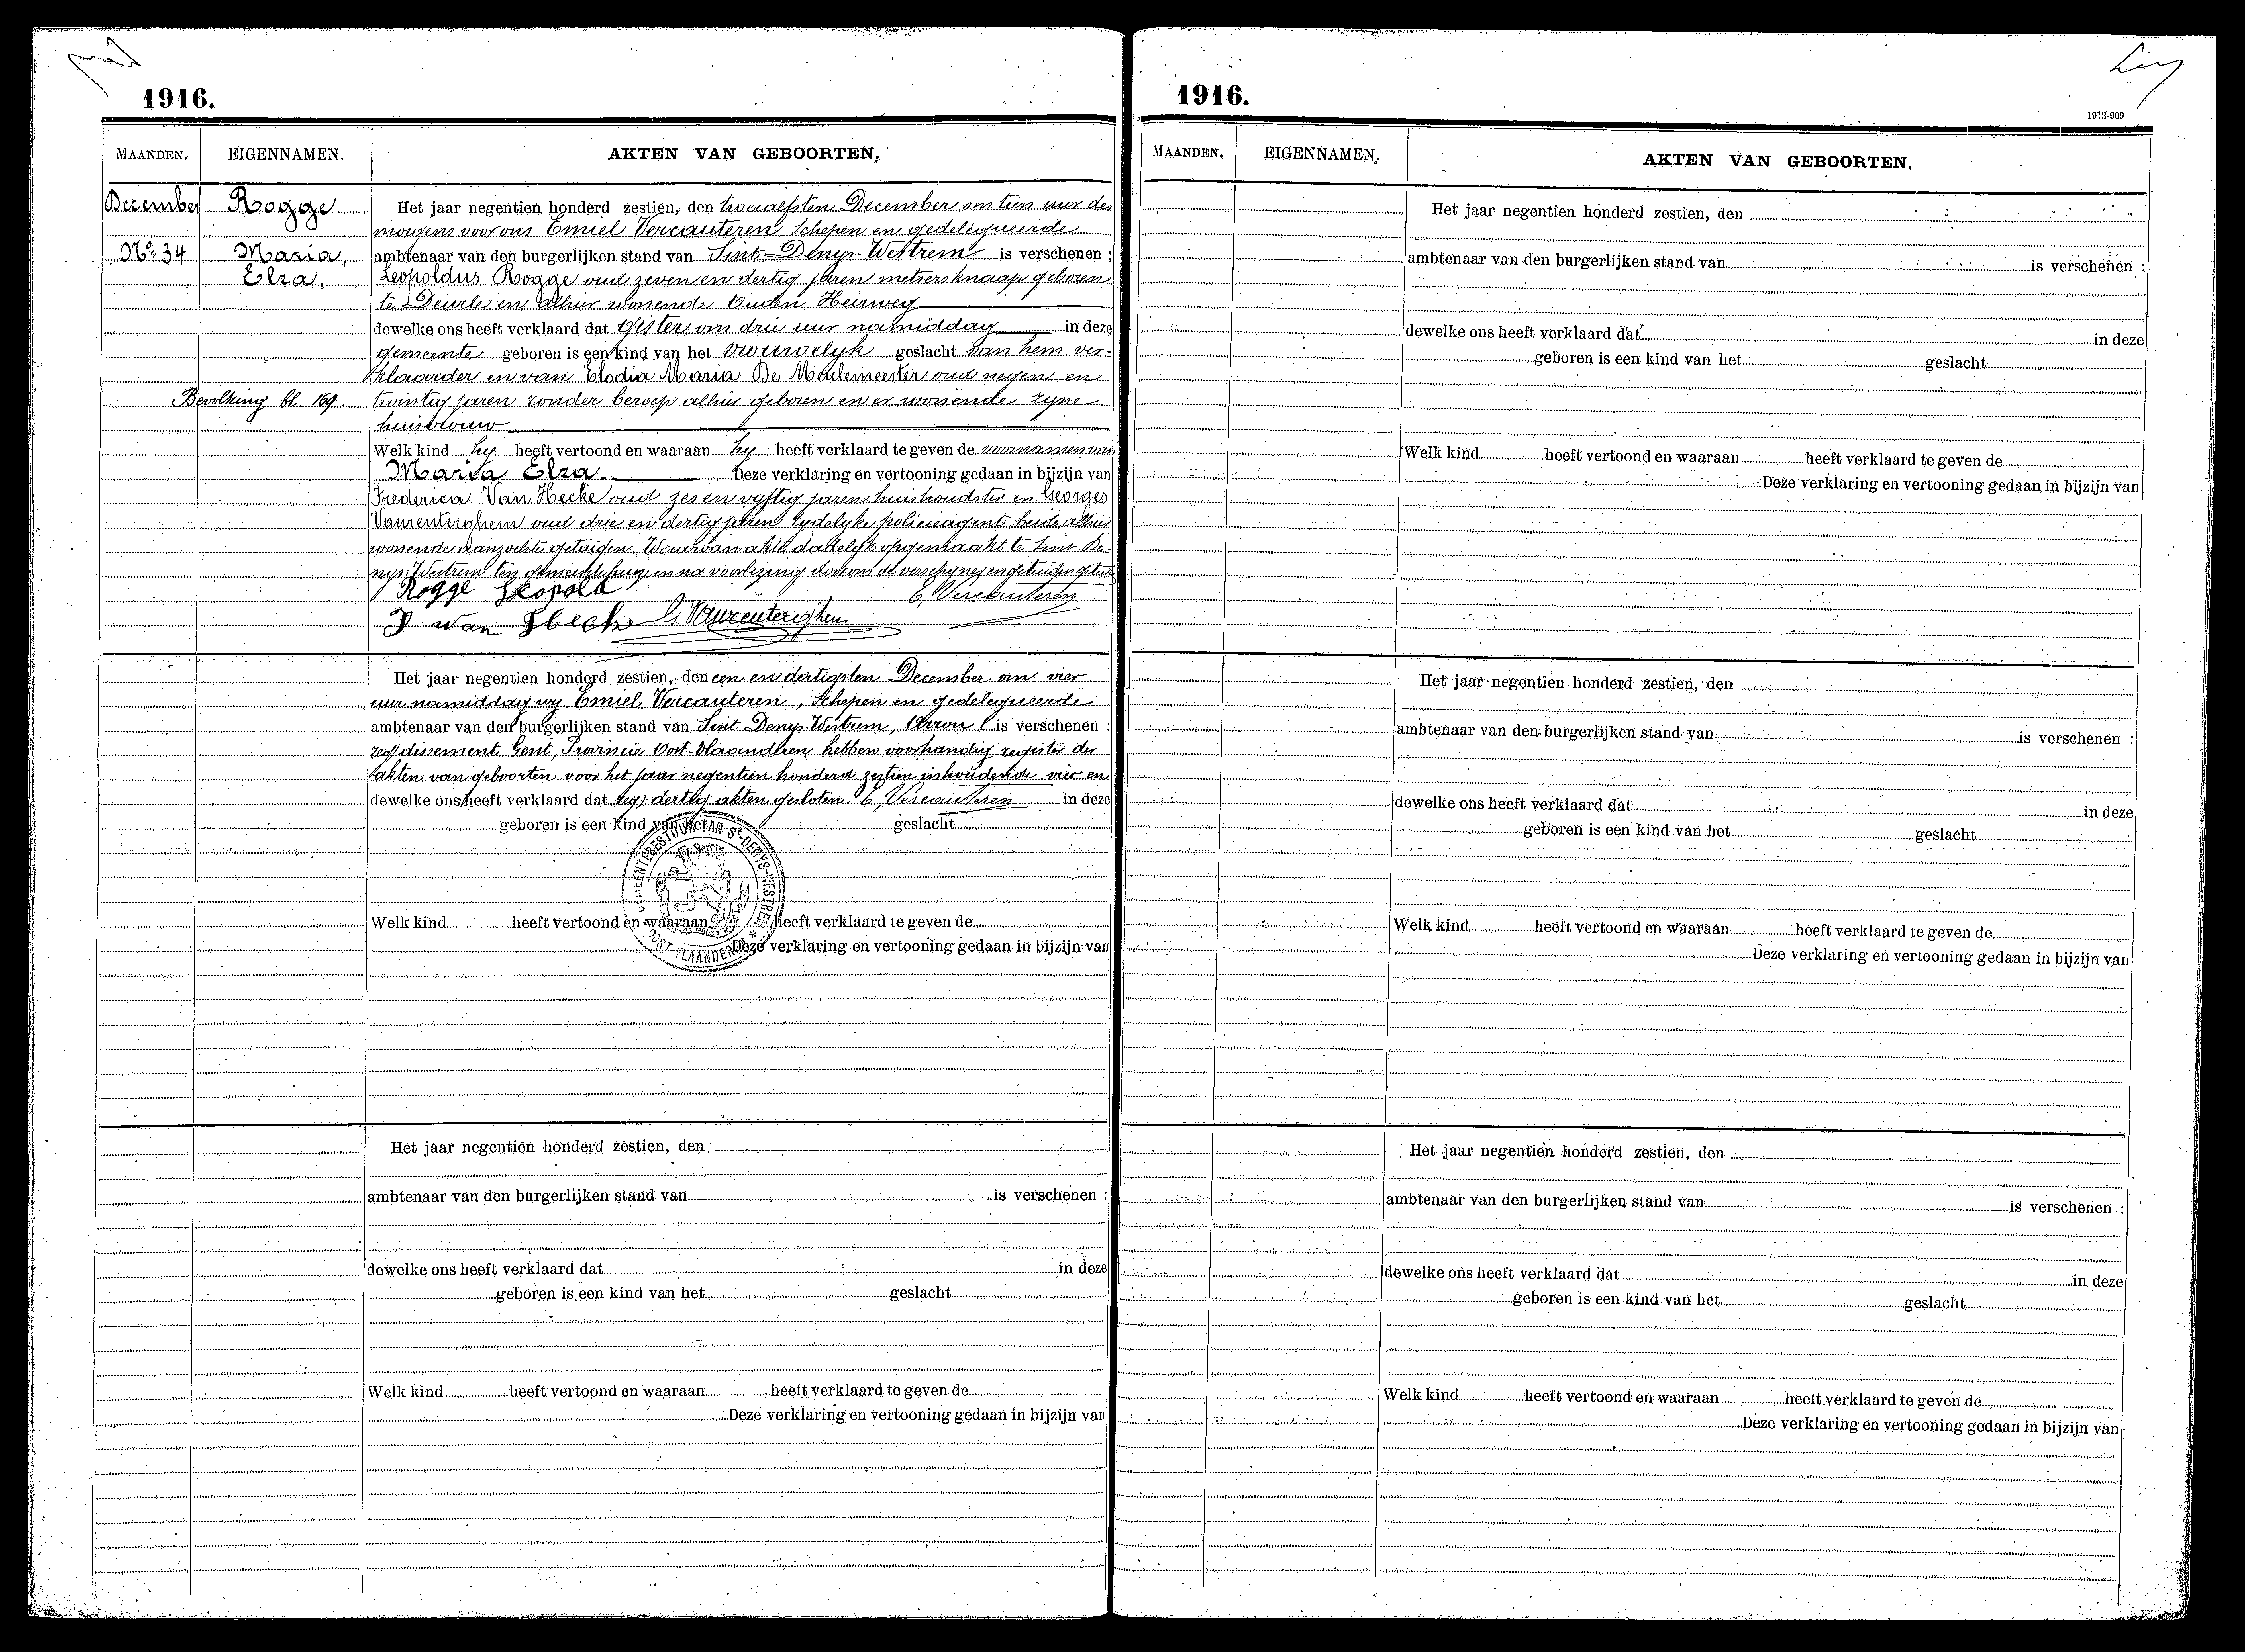 1916.
MAANDEN. EIGENNAMEN. AKTEN VAN GEBOORTEN.
December Rogge Het jaar negentien honderd zestien, den twaalfsten December om tien uur des
morgens voor ons Emiel Vercauteren, Schepen en gedelegueerde
No. 34 Maria, ambtenaar van den burgerlijken stand van Sint-Denys-Westrem is verschenen :
Elza. Leopoldus Rogge oud zeven en dertig jaren metsersknaap geboren
te Deurle en alhier wonende Ouden Heirweg
dewelke ons heeft verklaard dat gister om drie uur namiddag in deze
gemeente geboren is een kind van het vrouwelyk geslacht van hem ver-
klaarder en van Elodia Maria De Meulemeester oud negen en
Bevolking bl. 169. twintig jaren zonder beroep alhier geboren en er wonende zyne
huisvrouw
Welk kind hy heeft vertoond en waaraan hy heeft verklaard te geven de voornamen van
Maria Elza. Deze verklaring en vertooning gedaan in bijzijn van
Frederica Van Hecke oud zes en vyftig jaren huishoudster en Georges
Vanrenterghem oud drie en dertig jaren tydelyke policieagent beide alhier
wonende aanzochte getuigen. Waarvan akte dadelyk opgemaakt te Sint De-
nys-Westrem ten gemeentehuize en na voorlezing door ons de verschynej en getuigen geteek
Rogge Leopold E, Vercauteren
F Van Hecke G Vanrenterghem
Het jaar negentien honderd zestien, den een en dertigsten December om vier
uur namiddag wy Emiel Vercauteren, Schepen en gedelegueerde
ambtenaar van den burgerlijken stand van Sint-Denys-Westrem, Arron is verschenen :
zegt dissement Gent, Provincie Oost-Vlaanderen hebben voorhandig register der
akten van geboorten voor het jaar negentien honderd zestien inhoudende vier en
dewelke ons heeft verklaard dat zegt dertig akten gesloten. E, Vercauteren in deze
geboren is een kind van het geslacht
GEMEENTEBESTUUR VAN ST-DENYS-WESTREM
OOST-VLAANDEREN
Welk kind heeft vertoond en waaraan heeft verklaard te geven de
Deze verklaring en vertooning gedaan in bijzijn van
Het jaar negentien honderd zestien, den
ambtenaar van den burgerlijken stand van is verschenen :
dewelke ons heeft verklaard dat in deze
geboren is een kind van het geslacht
Welk kind heeft vertoond en waaraan heeft verklaard te geven de
Deze verklaring en vertooning gedaan in bijzijn van
1916.
1912-909
MAANDEN. EIGENNAMEN. AKTEN VAN GEBOORTEN.
Het jaar negentien honderd zestien, den
ambtenaar van den burgerlijken stand van is verschenen :
dewelke ons heeft verklaard dat in deze
geboren is een kind van het geslacht
Welk kind heeft vertoond en waaraan heeft verklaard te geven de
Deze verklaring en vertooning gedaan in bijzijn van
Het jaar negentien honderd zestien, den
ambtenaar van den burgerlijken stand van is verschenen :
dewelke ons heeft verklaard dat in deze
geboren is een kind van het geslacht
Welk kind heeft vertoond en waaraan heeft verklaard te geven de
Deze verklaring en vertooning gedaan in bijzijn van
Het jaar negentien honderd zestien, den
ambtenaar van den burgerlijken stand van is verschenen :
dewelke ons heeft verklaard dat in deze
geboren is een kind van het geslacht
Welk kind heeft vertoond en waaraan heeft verklaard te geven de
Deze verklaring en vertooning gedaan in bijzijn van